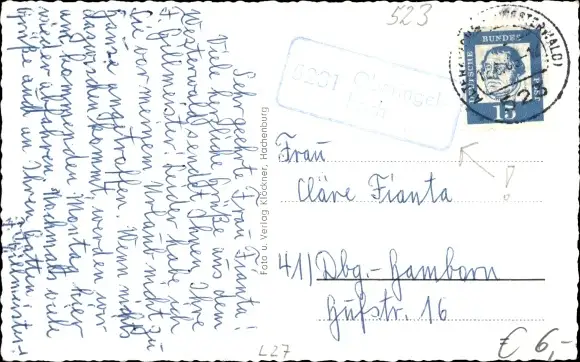 Sehr geehrte Frau Fianta!
Viele herzliche Grüße aus dem
Westerwald sendet Ihnen Ihre
F. Gillmeister! Leider habe ich
Sie vor meinem Urlaub nicht zu
Hause angetroffen. Wenn nichts
dazwischen kommt, werden wir
am kommenden Montag hier
wieder abfahren. Nochmals viele
Grüße auch an Ihren Gatten
F. Gillmeister
Foto u. Verlag Klöckner, Hachenburg
523
5231
DEUTSCHE BUNDES
15
(WESTERWALD)
523
Frau
Cläre Fianta
!
41) Dbg.-Hamborn
Hufstr. 16
L27
€ 6,-